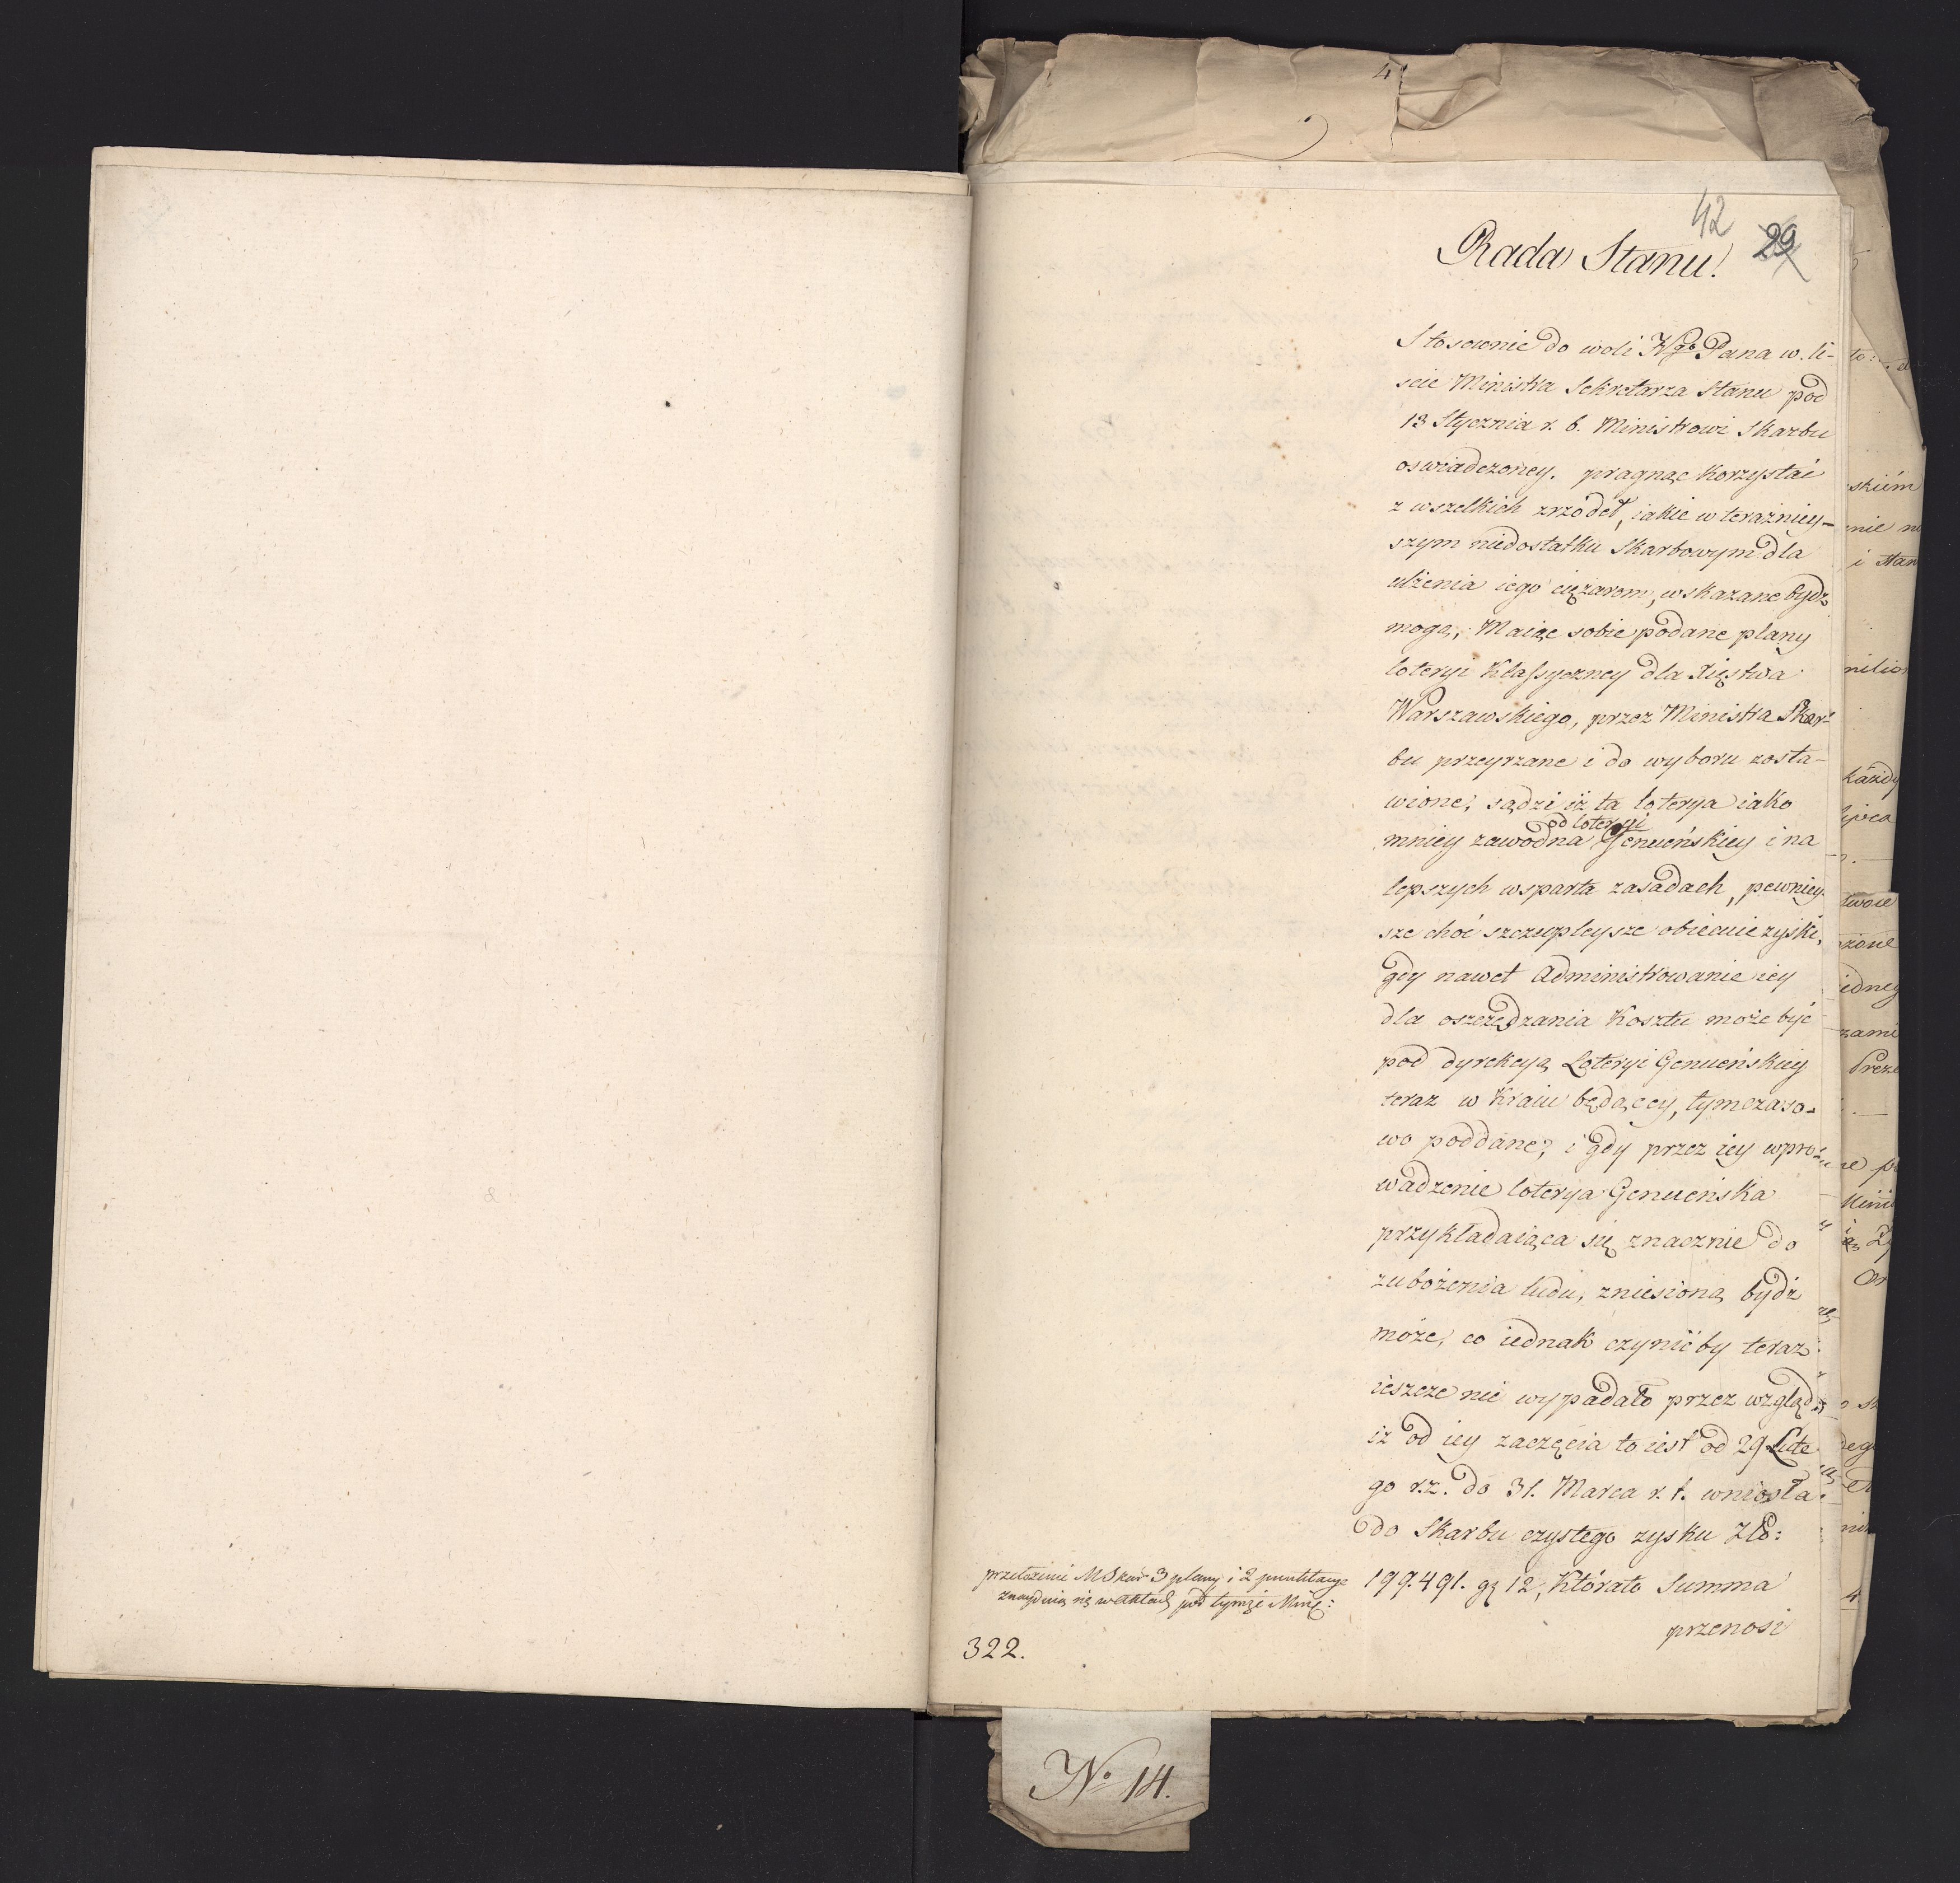 4
42
29
Rada Stanu.
Stosownie do woli Kgo Pana w li-
scie Ministra Sekretarza Stanu pod
13 Stycznia r. b. Ministrowi Skarbu
oswiadczoney. pragnąc korzystać
z wszelkich zrzódeł, iakie w teraźniey-
szym niedostatku Skarbowym dla
ulżenia iego ciężarom, wskazane bydz
mogą, Maiąc sobie podane plany
loteryi Klassyczney dla Xięstwa
Warszawskiego, przez Ministra Skar-
bu przeyrzane i do wyboru zosta-
wione, sądzi iż ta loterya iako
od loteryi
mniey zawodna Genueńskiey i na
lepszych wsparta zasadach, pewniey-
sze choć szczupleysze obiecuie zyski,
gdy nawet Administrowanie iey
dla oszczędzania Kosztu może być
pod dyrekcyą Loteryi Genueńskiey
teraz w Kraiu będącey, tymczaso-
wo poddane, i gdy przez iey wpro-
wadzenie loterya Genueńska
przykładaiąca się znacznie do
zubożenia ludu, zniesioną bydź
może, co iednak czynić by teraz
ieszcze nie wypadało przez wzgląd
iż od iey zaczęcia to iest od 29 Lute
go r.z. do 31. Marca r. t. wniosła
do Skarbu czystego zysku Złł:
199.491. gę 12, Którato Summa
przenosi
przełożenie M Skar 3 plany i 2
znayduią się w aktach pod tymże
322.
No 14.